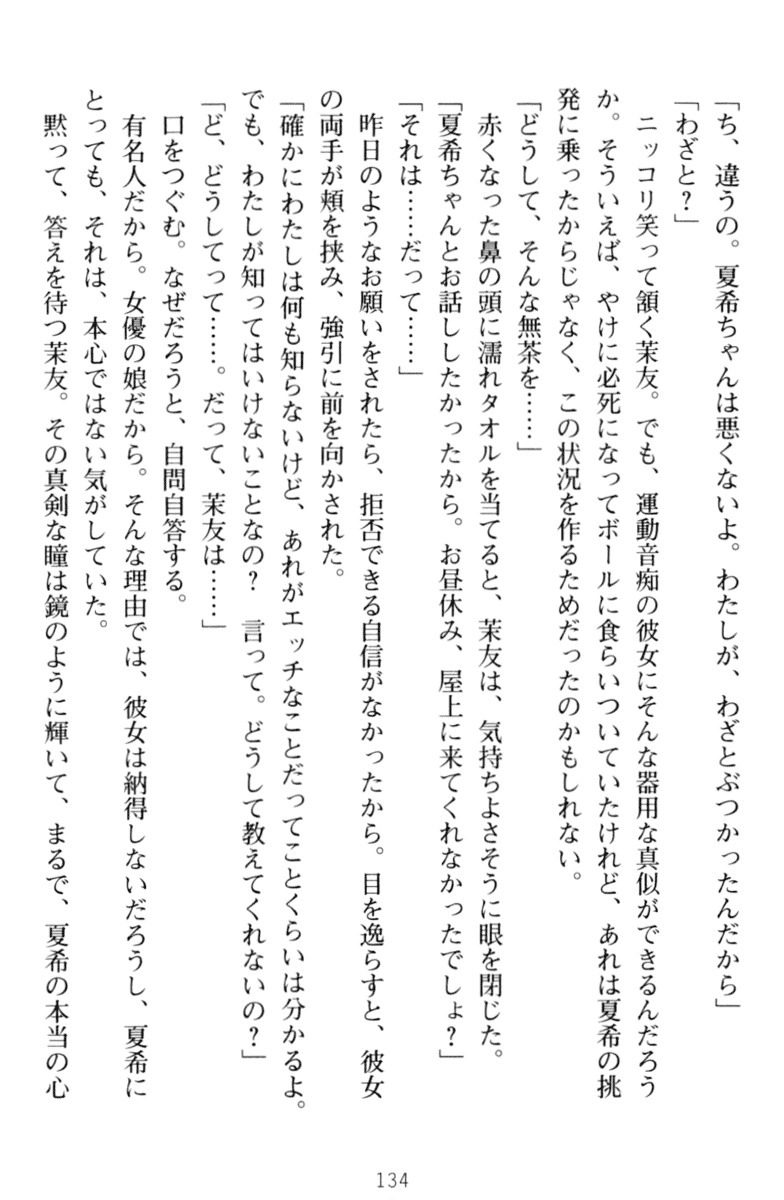 「ち、違うの。夏希ちゃんは悪くないよ。わたしが、わざとぶつかったんだから」
「わざと？」
ニッコリ笑って頷く茉友。でも、運動音痴の彼女にそんな器用な真似ができるんだろう
か。そういえば、やけに必死になってボールに食らいついていたけれど、あれは夏希の挑
発に乗ったからじゃなく、この状況を作るためだったのかもしれない。
「どうして、そんな無茶を……」
赤くなった鼻の頭に濡れタオルを当てると、茉友は、気持ちよさそうに眼を閉じた。
「夏希ちゃんとお話ししたかったから。お昼休み、屋上に来てくれなかったでしょ？」
「それは……だって……」
昨日のようなお願いをされたら、拒否できる自信がなかったから。目を逸らすと、彼女
の両手が頬を挟み、強引に前を向かされた。
「確かにわたしは何も知らないけど、あれがエッチなことだってことくらいは分かるよ。
でも、わたしが知ってはいけないことなの？　言って。どうして教えてくれないの？」
「ど、どうしてって……。だって、茉友は……」
口をつぐむ。なぜだろうと、自問自答する。
有名人だから。女優の娘だから。そんな理由では、彼女は納得しないだろうし、夏希に
とっても、それは、本心ではない気がしていた。
黙って、答えを待つ茉友。その真剣な瞳は鏡のように輝いて、まるで、夏希の本当の心
134